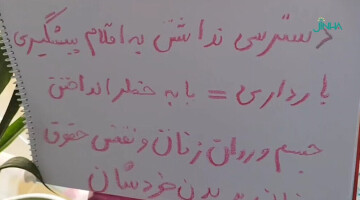 JINHA
دسترسی نداشتن به اقلام پیشگیری
بارداری = با به خطر انداختن
جسم و روان زنان و نقض حقوق
زنان بر بدن خودشان